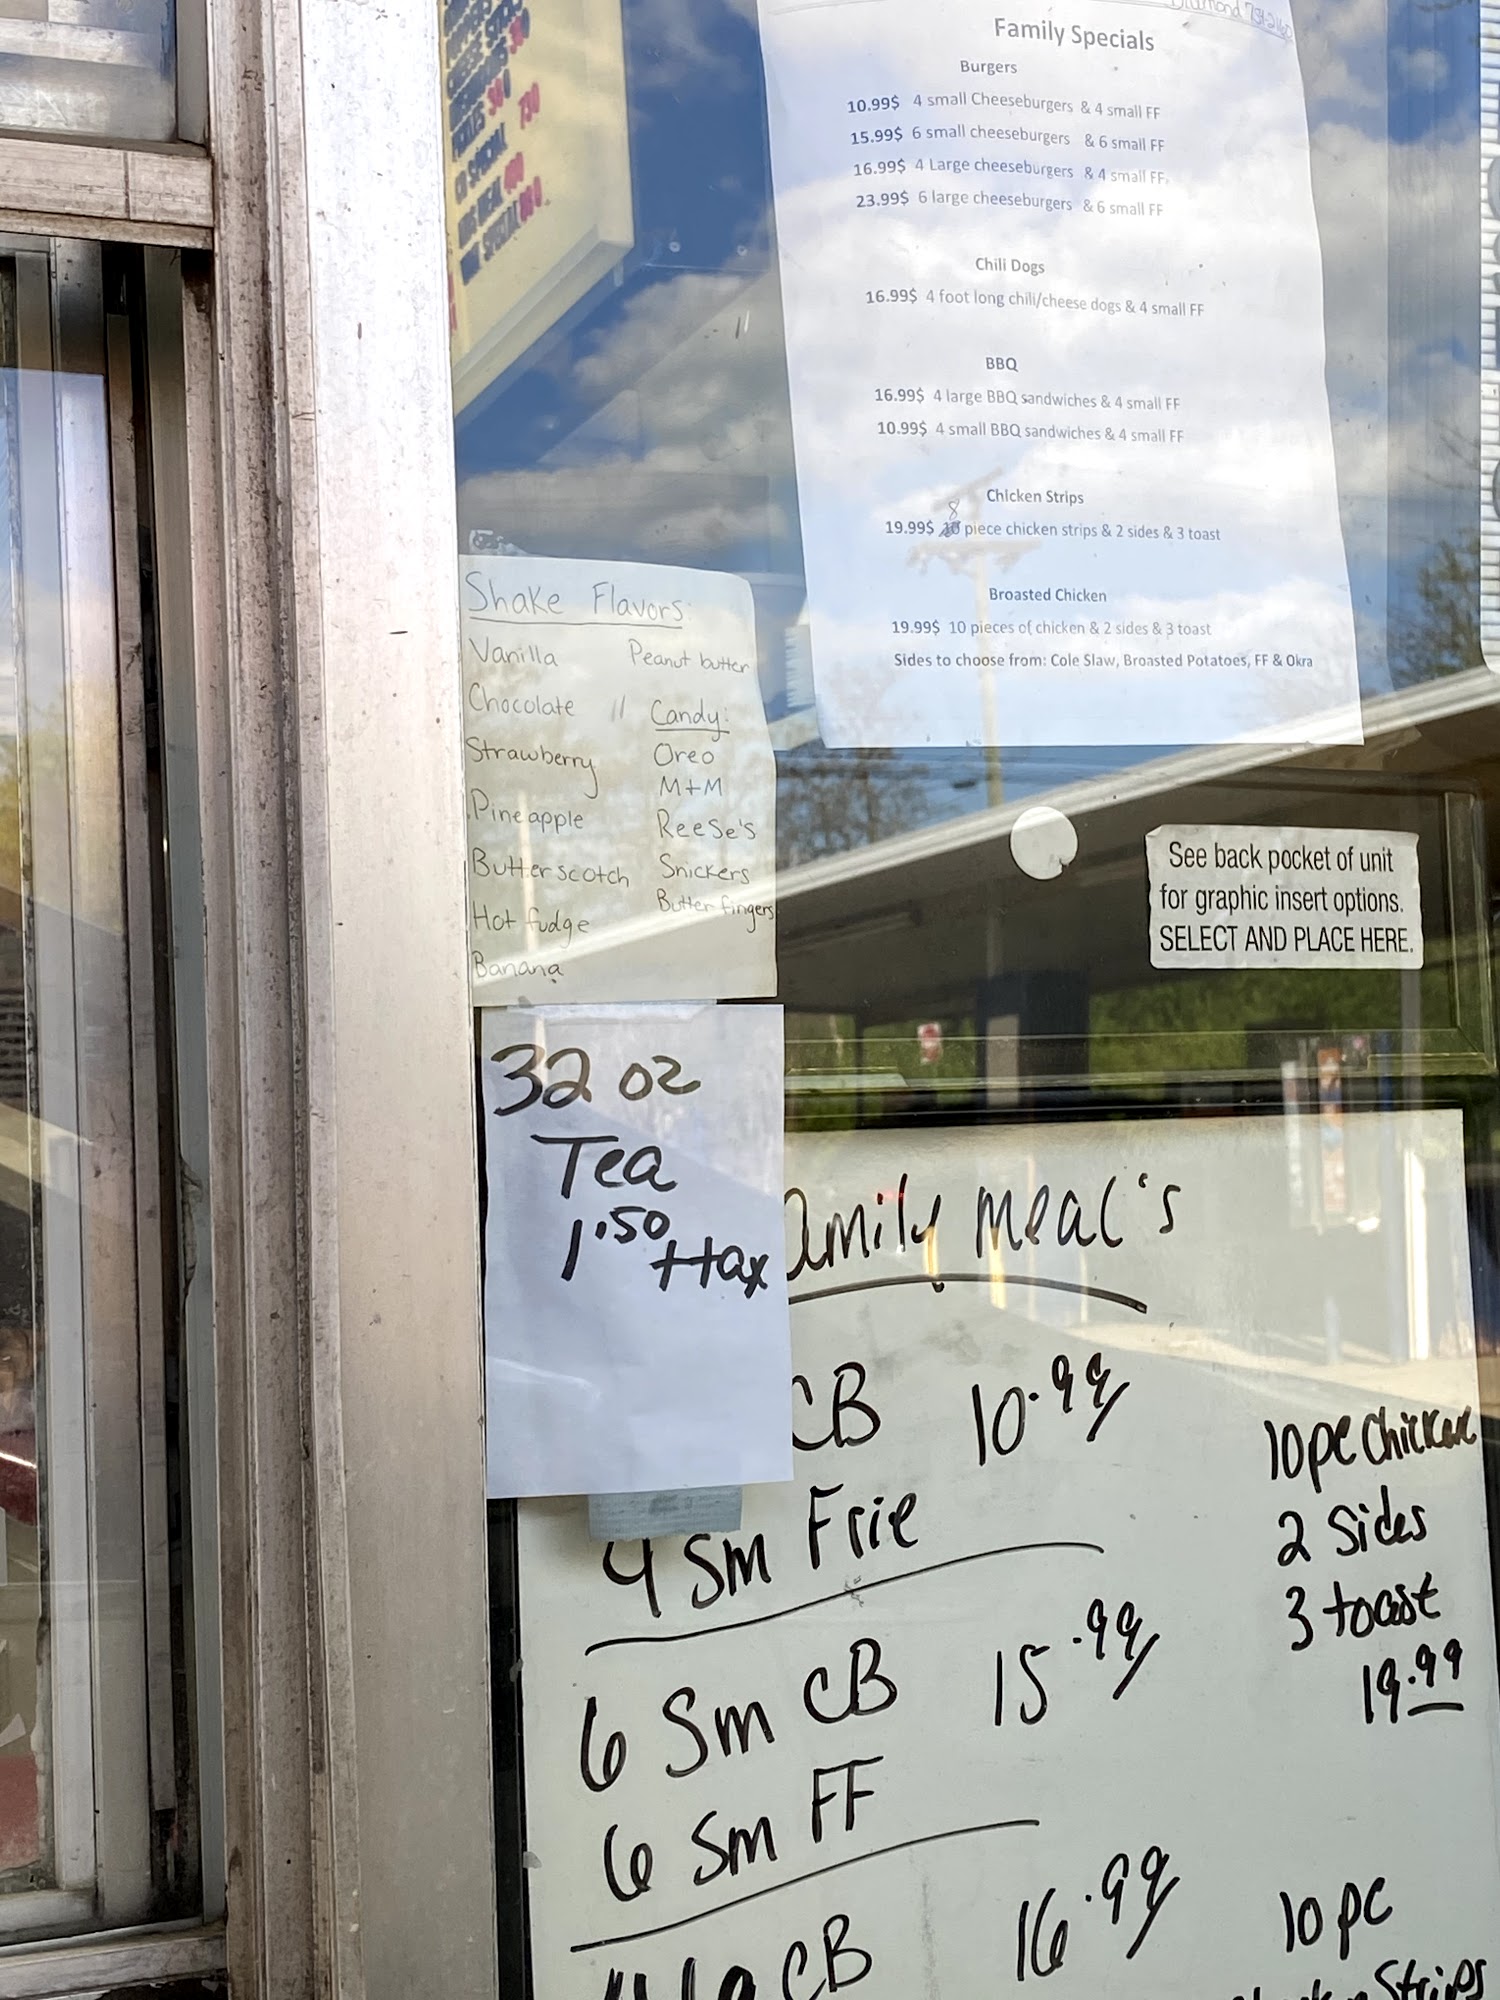 Family Specials
Burgers
10.99$ 4 small Cheeseburgers & 4 small FF
15.99$ 6 small cheeseburgers & 6 small FF
16.99$ 4 Large cheeseburgers & 4 small FF
23.99$ 6 large cheeseburgers & 6 small FF
Chili Dogs
16.99$ 4 foot long chili/cheese dogs & 4 small FF
BBQ
16.99$ 4 large BBQ sandwiches & 4 small FF
10.99$ 4 small BBQ sandwiches & 4 small FF
Chicken Strips
19.99$ 8 piece chicken strips & 2 sides & 3 toast
Broasted Chicken
19.99$ 10 pieces of chicken & 2 sides & 3 toast
Sides to choose from: Cole Slaw, Broasted Potatoes, FF & Okra
Shake Flavors:
Vanilla
Chocolate
Strawberry
Pineapple
Butterscotch
Hot fudge
Banana
Peanut butter
Candy:
Oreo
M+M
Reese's
Snickers
Butterfingers
See back pocket of unit
for graphic insert options.
SELECT AND PLACE HERE.
32 oz
Tea
1.50 + tax
amily meal's
CB 10.99
4 Sm Frie
6 Sm CB 15.99
6 Sm FF
CB 16.99
10pc Chicken
2 Sides
3 toast
19.99
10 pc
Strips